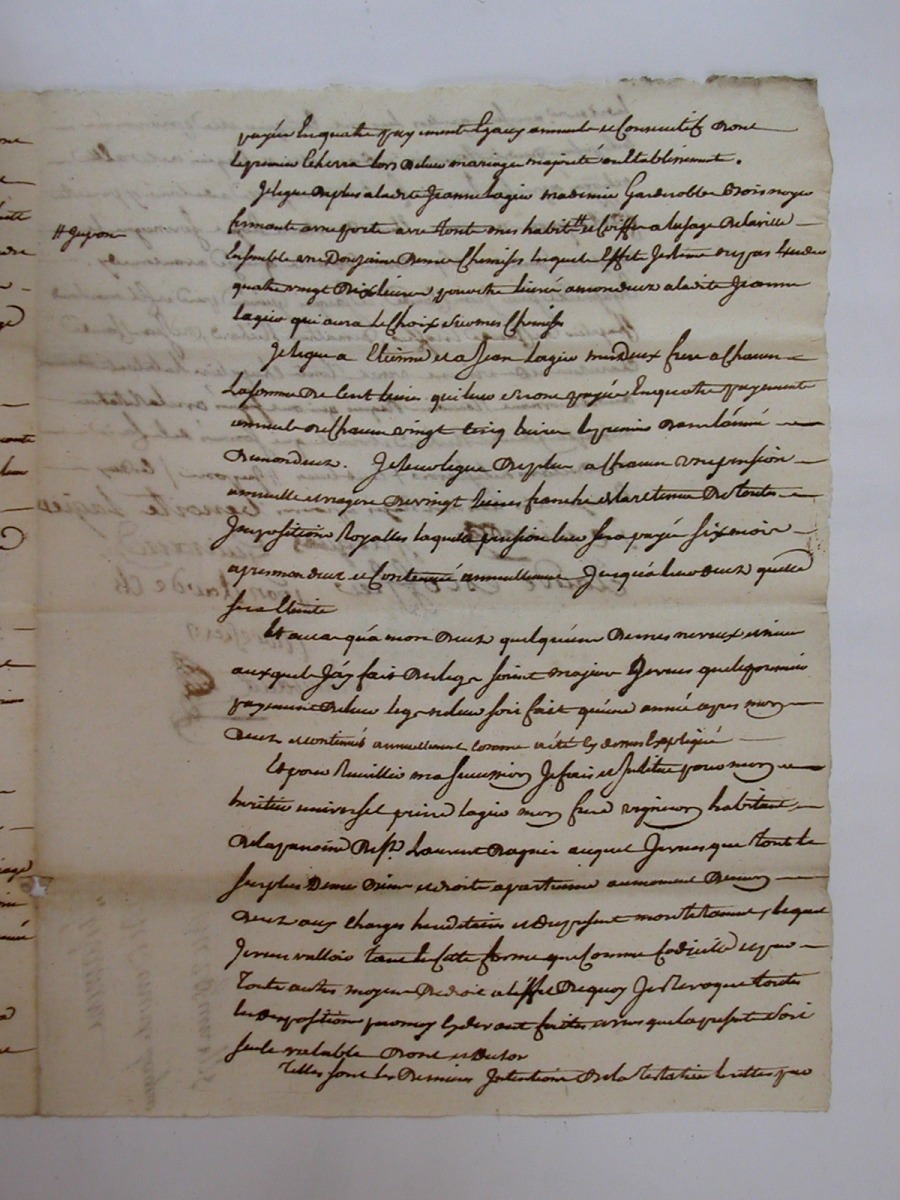 payés en quatre payement egaux annuels et consecutifs dont
le premier echerra lors de leur mariage majorité ou etablissement.
Je legue de plus a la dite Jeanne Lagier ma demie Garderobbe bois noyer
fermante a une porte avec tout mes habits et coiffes a lusage de la ville
# Jupon
Ensemble une Douzaine de mes Chemises lesquels Effet Jestime
quatre vingt dix livres pour etre livré a mon deux a la dite Jeanne
Lagier qui aura le Choix de mes Chemises
Je legue a Etienne et a Jean Lagier mes deux frere a chacun
La somme de Cent livres qui leur seront payée en quatre payement
annuels de chacun vingt cinq livres le premier dans lannée
de mon deux. Je leur legue de plus a chacun une pension
annuelle et viagere de vingt livres franche de la retenue de toutes
Imposition Royalles laquelle pension leur sera payé six mois
apres mon deux et Continué annuellement Jusqu'a leur deux quelle
sera Eteinte
Et au cas qu'a mon deux quelqu'un de mes neveux et niece
auxquel J'ay fait des legs soient majeur Je veux que le premier
payement de leur legs ne leur soit fait qu'une année apres mon
deux et continués annuellement comme a été cy dessus Expliqué
Et pour Recuillir ma succession Je fais et Institue pour mon
heritier universel pierre Lagier mon frere vigneron habitant
de la paroisse de St. Laurent Dagnier auquel Je veux que tout le
surplus de mes Biens et droits apartienne au moment de mon
deux aux Charges hereditaires et du present mon testament, lequel
Je veux valloir tant en Cette forme que Comme Codicille et par
Toute autres moyen de droit a l'effet de quoy Je Revoque toutes
les disposition pour moy cy devant faites veux que la presente soit
seule valable
Telles sont les Dernieres Intentions de la Testatrice lesquelles